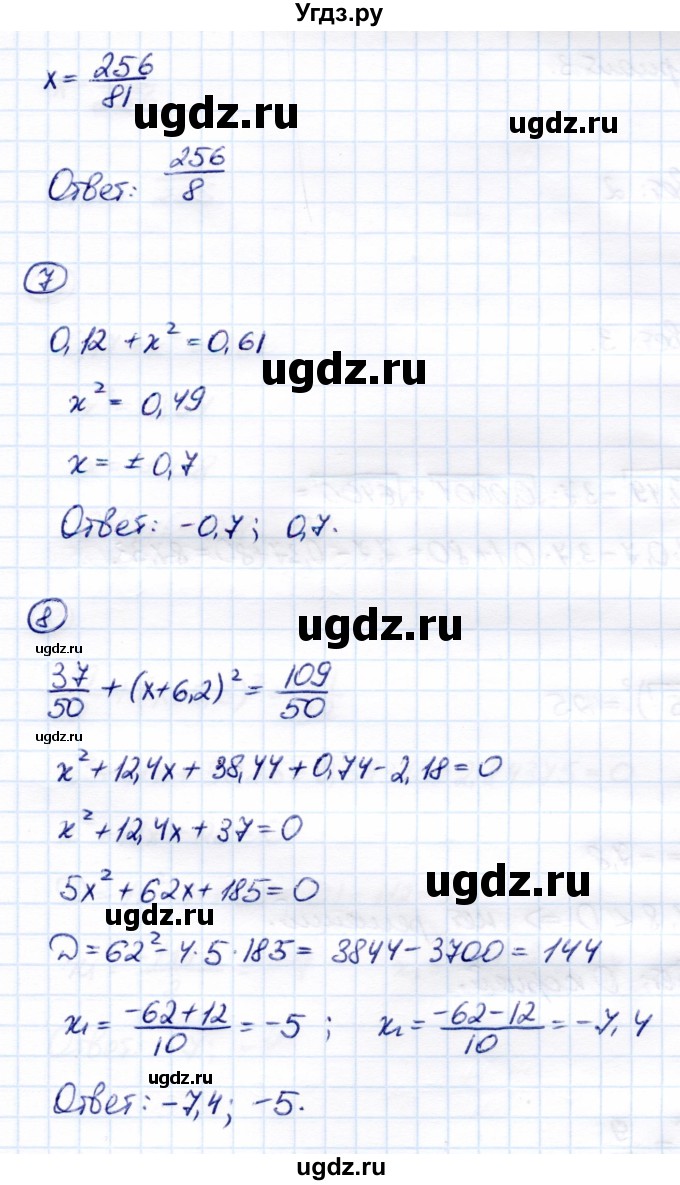 Угдз.ру
x = 256/81
ugdz.ru
ugdz.ru
Ответ: 256/8
7
0,12 + x² = 0,61
ugdz.ru
x² = 0,49
x = ± 0,7
Ответ: -0,7; 0,7.
8
ugdz.ru
ugdz.ru
37/50 + (x+6,2)² = 109/50
ugdz.ru
x² + 12,4x + 38,44 + 0,74 - 2,18 = 0
x² + 12,4x + 37 = 0
ugdz.ru
5x² + 62x + 185 = 0
ugdz.ru
D = 62² - 4·5·185 = 3844 - 3700 = 144
x₁ = (-62+12)/10 = -5 ; x₂ = (-62-12)/10 = -7,4
ugdz.ru
Ответ: -7,4; -5.
ugdz.ru